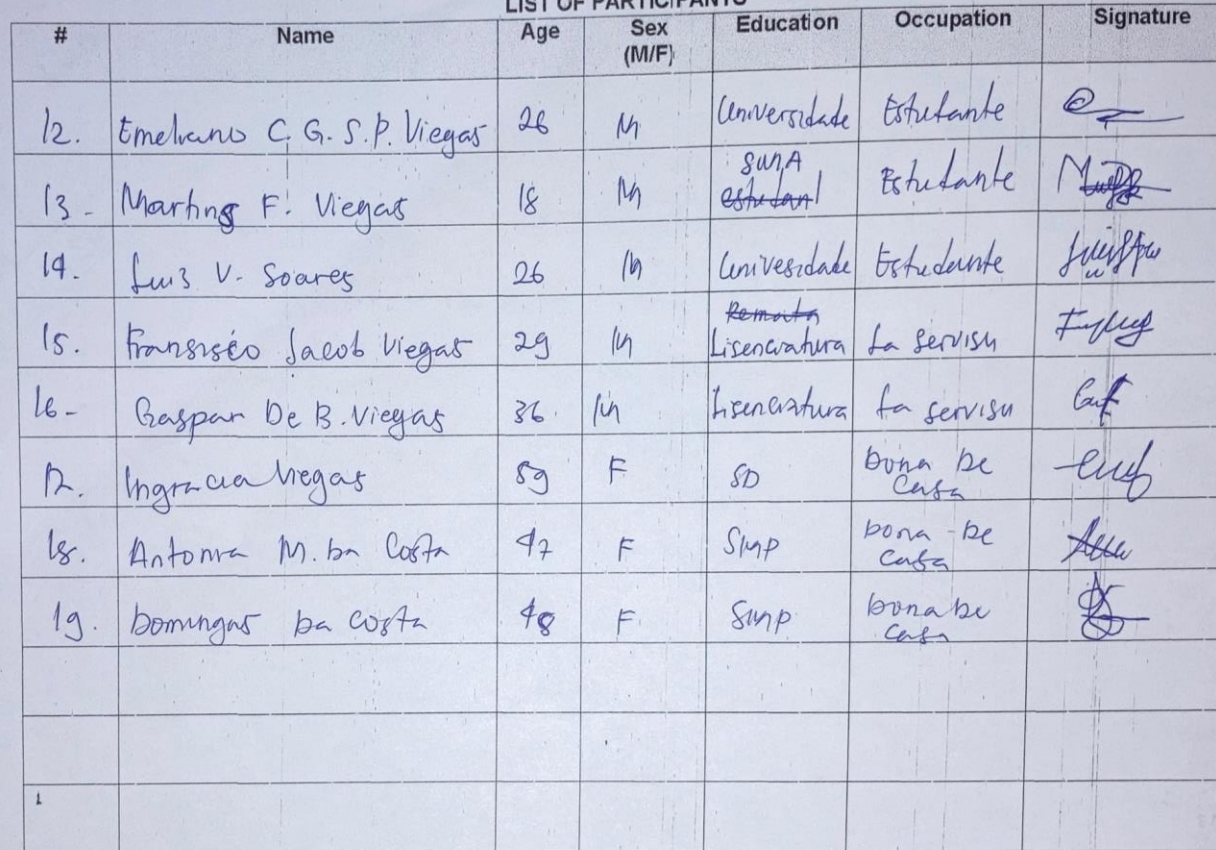 LIST OF PARTICIPANTS
# Name Age Sex (M/F) Education Occupation Signature
12. Emeliano C. G. S. P. Viegas 26 M Universidade Estudante
13- Martins F. Viegas 18 M SMA Estudante
14. Luis V. Soares 26 M Univesidade Estudante
15. Fransisco Jacob Viegas 29 M Lisenciatura La servisu
16- Gaspar De B. Viegas 36 M Lisenciatura La servisu
17. Ingracia Viegas 59 F SD Dona De Casa
18. Antonia M. Da Costa 47 F SMP Dona De Casa
19. Domingas Da Costa 48 F SMP Dona De Casa
1